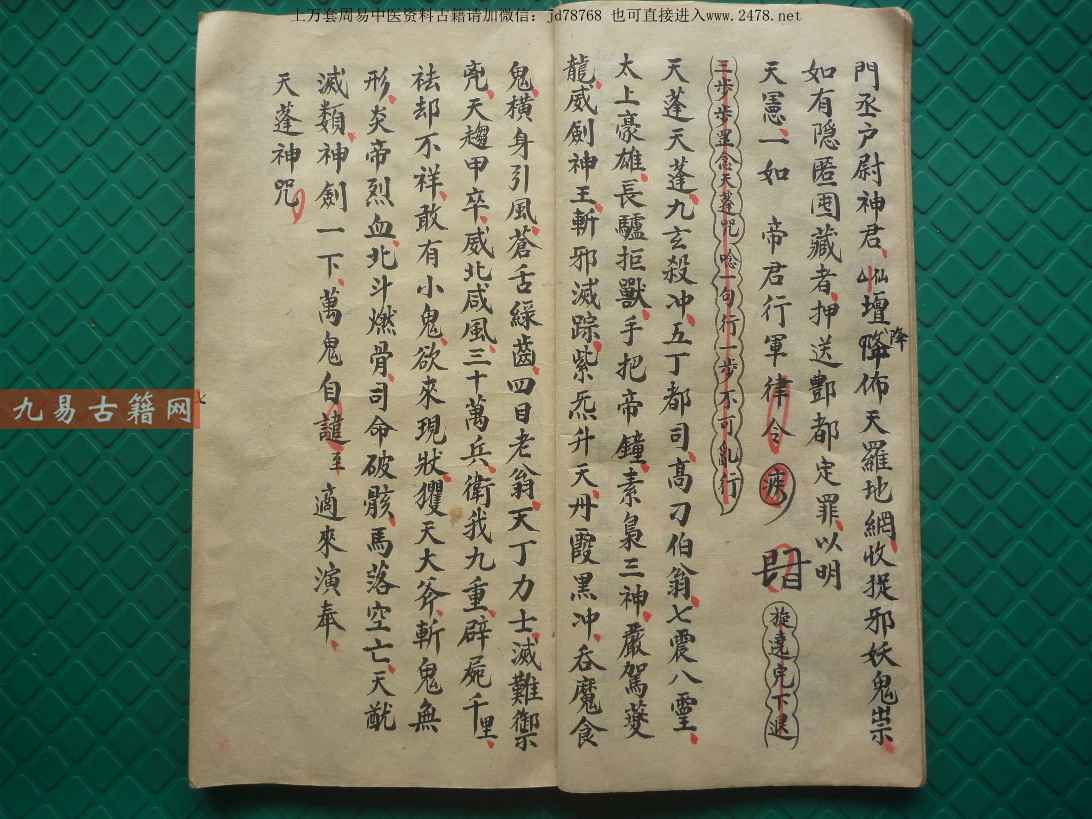 上万套周易中医资料古籍请加微信：jd78768 也可直接进入www.2478.net
門丞户尉神君、仙壇降佈天羅地網、收捉邪妖鬼祟
降
如有隱匿囤藏者、押送酆都定罪、以明
天憲、一如 帝君行軍律令
旋遶完下退
三步步罡念天蓬咒唸一句行一步不可亂行
天蓬天蓬、九玄殺冲、五丁都司、高刁伯翁、七震八靈、
太上豪雄、長驢拒獸、手把帝鐘、素梟三神、嚴駕夔
龍、威劍神王、斬邪滅踪、紫炁升天、丹霞黑冲、吞魔食
鬼、橫身引風、蒼舌綠齒、四目老翁、天丁力士、滅難禦
兇、天騶甲卒、威北咸風、三十萬兵、衛我九重、辟屍千里、
祛却不祥、敢有小鬼、欲來現狀、玃天大斧、斬鬼無
形、炎帝烈血、北斗燃骨、司命破骸、馬落空亡、天猷
滅類、神劍一下、萬鬼自 適來演奉、
天蓬神咒
七
九易古籍网